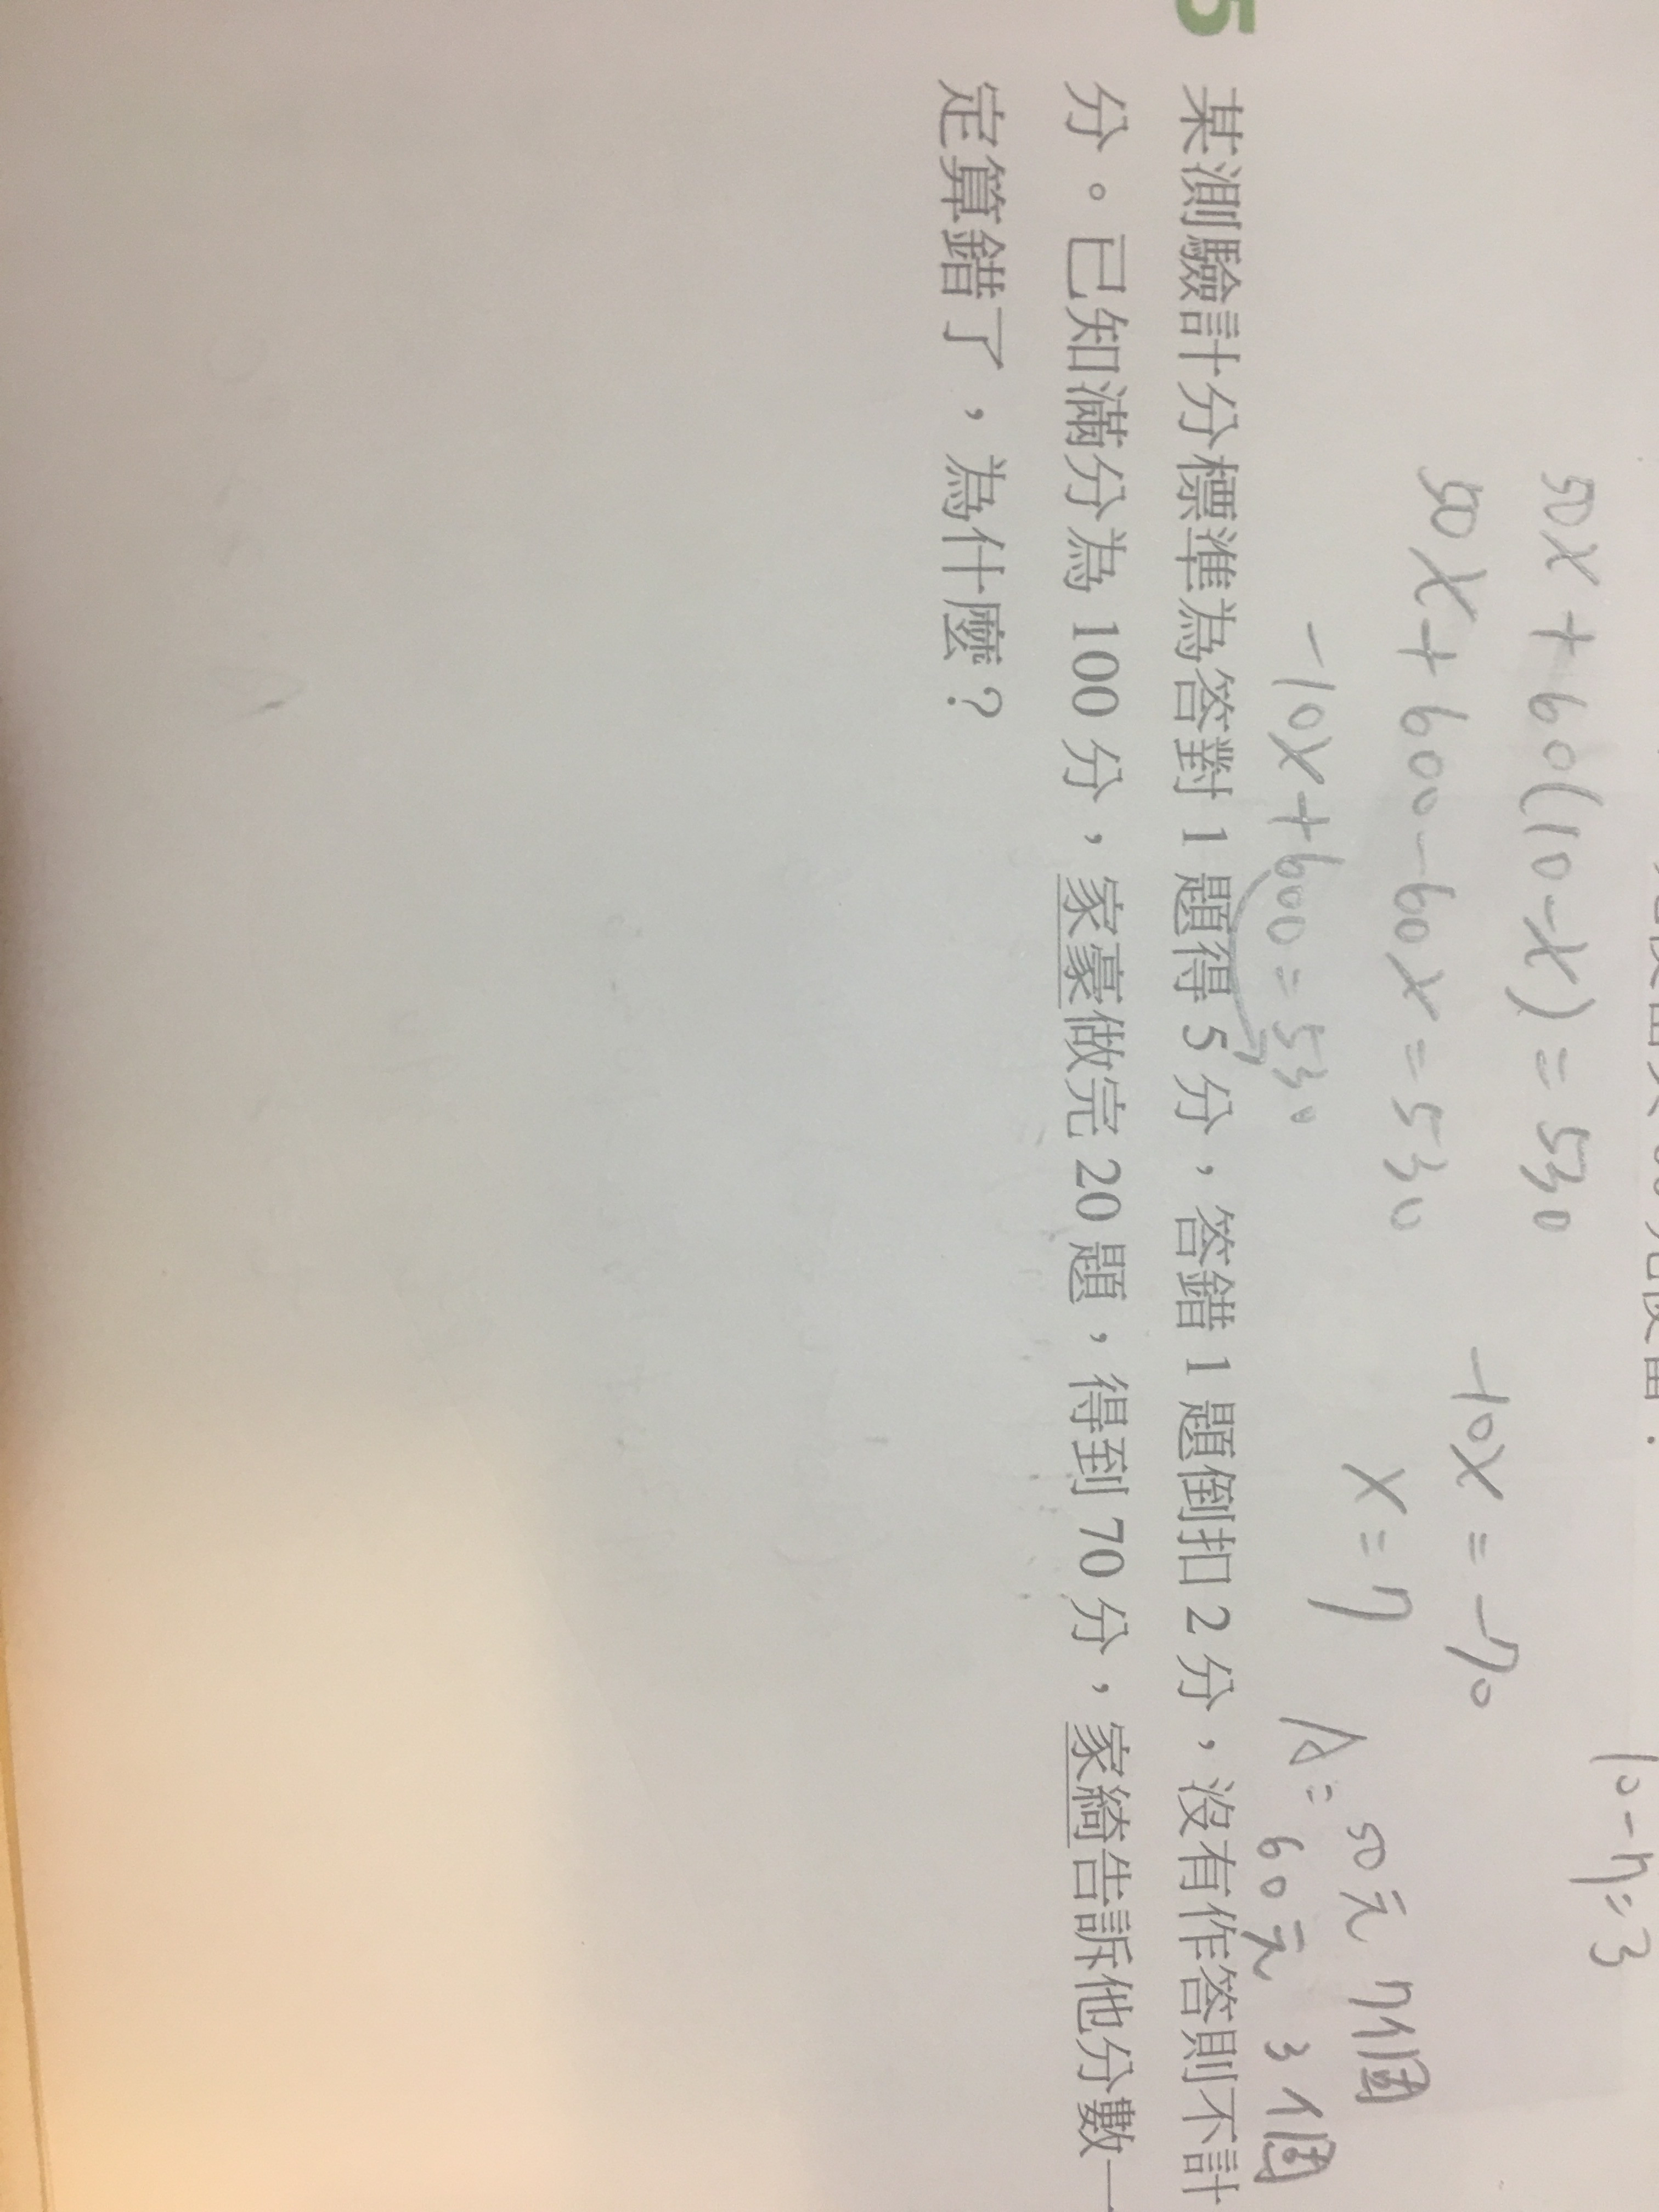 10-7=3
50x+60(10-x)=530
50x+600-60x=530
-10x=-70
x=7
-10x+600=530
A: 50元 7個
60元 3個
5 某測驗計分標準為答對 1 題得 5 分，答錯 1 題倒扣 2 分，沒有作答則不計
分。已知滿分為 100 分，家豪做完 20 題，得到 70 分，家綺告訴他分數一
定算錯了，為什麼？